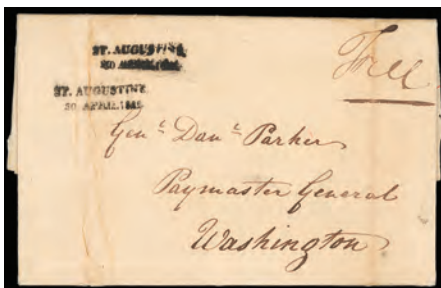 ST. AUGUSTINE
20 APRIL
ST. AUGUSTINE
20 APRIL
Free
Genl. Danl. Parker
Paymaster General
Washington